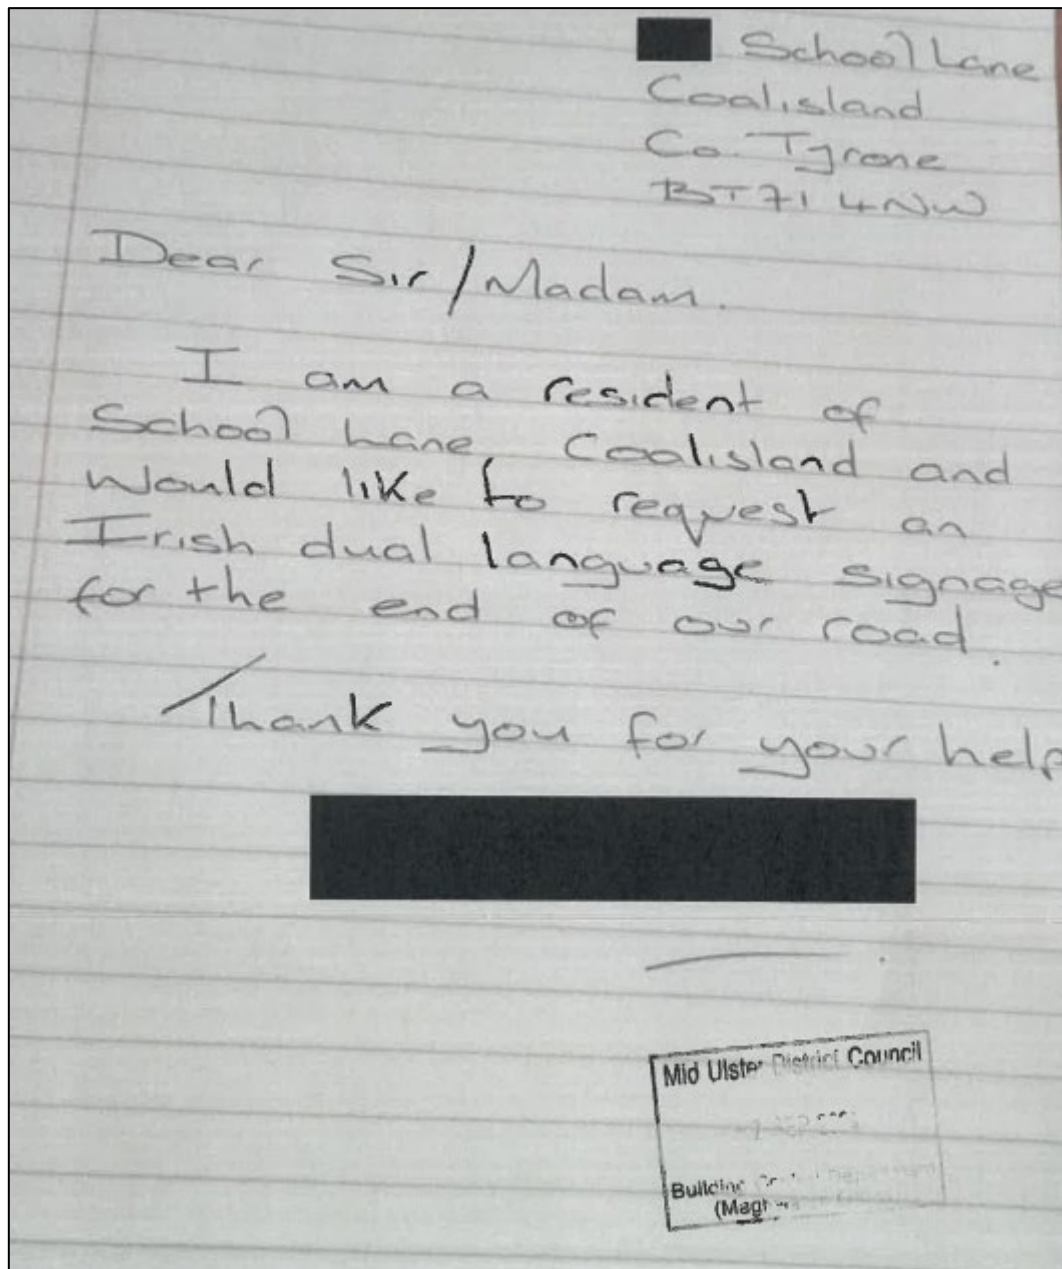 School Lane
Coalisland
Co. Tyrone
BT71 4NW
Dear Sir/Madam.
I am a resident of
School Lane, Coalisland and
would like to request an
Irish dual language signage
for the end of our road.
Thank you for your help
Mid Ulster District Council
SEP
Building